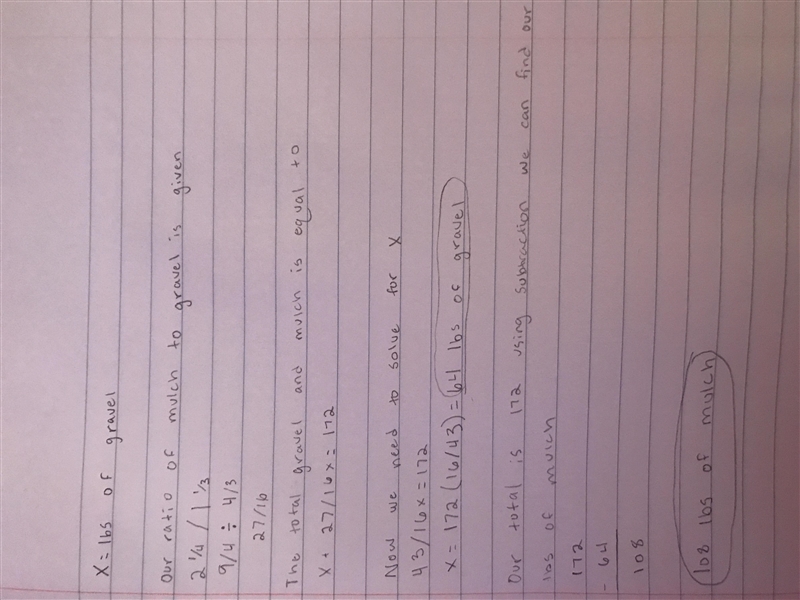 X = lbs of gravel
Our ratio of mulch to gravel is given
2 1/4 / 1 1/3
9/4 ÷ 4/3
27/16
The total gravel and mulch is equal to
X + 27/16x = 172
Now we need to solve for X
43/16x = 172
X = 172 (16/43) = 64 lbs of gravel
Our total is 172 using subtraction we can find our
lbs of mulch
172
- 64
108
108 lbs of mulch